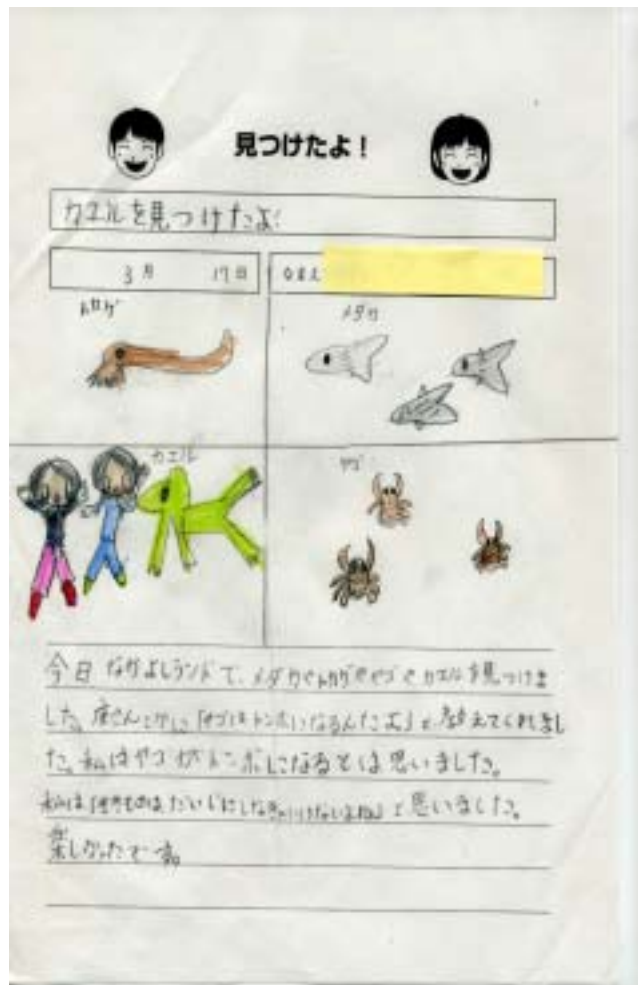 見つけたよ!
カエルを見つけたよ!
3月 17日
メダカ
カエル
ヤゴ
今日 なかよしランドで、メダカやトカゲやヤゴやカエルを見つけま
した。「ヤゴはトンボになるんだよ」と教えてくれまし
た。私はヤゴがトンボになるとは思いました。
私は「生きものは、だいじにしなきゃいけないよね」と思いました。
楽しかったです。